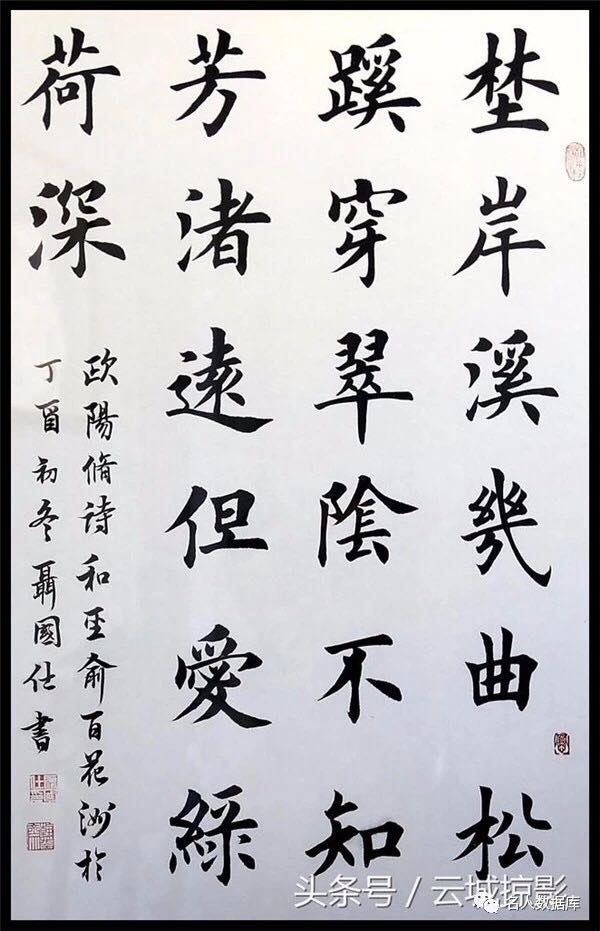 埜岸溪幾曲松
蹊穿翠陰不知
芳渚遠但愛綠
荷深
歐陽脩詩和聖俞百花洲於
丁酉初冬聶國仕書
头条号 / 云城掠影
名人数据库